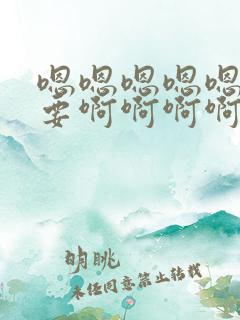 嗯嗯嗯嗯嗯
要啊啊啊啊
明眺
未经同意禁止转载